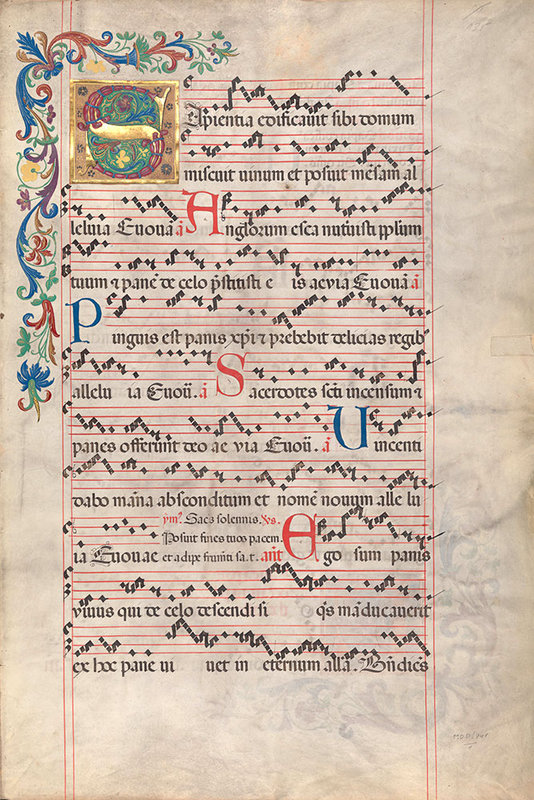 Sapientia edificavit sibi domum
miscuit uinum et posuit mēsam al
leluia Euouā ā Anglorum esca nutriuisti ppłum
tuum et panē de celo pr̄stitisti e is aeuia Euouā ā
Pinguis est panis xpi et prebebit delicias regib
allelu ia Euou. ā Sacerdotes scti incensum et
panes offerunt deo ae via Euou. ā Uincenti
dabo māna absconditum et nomē nouum alle lu
ym9 Sacs solemnis. Xs.
ia Euouae Posuit fines tuos pacem.
et adipe frumīti sa.t. añt Ego sum panis
viuus qui de celo descendi si q̄s māducauerit
ex hoc pane ui uet in eternum alla. Bñdics